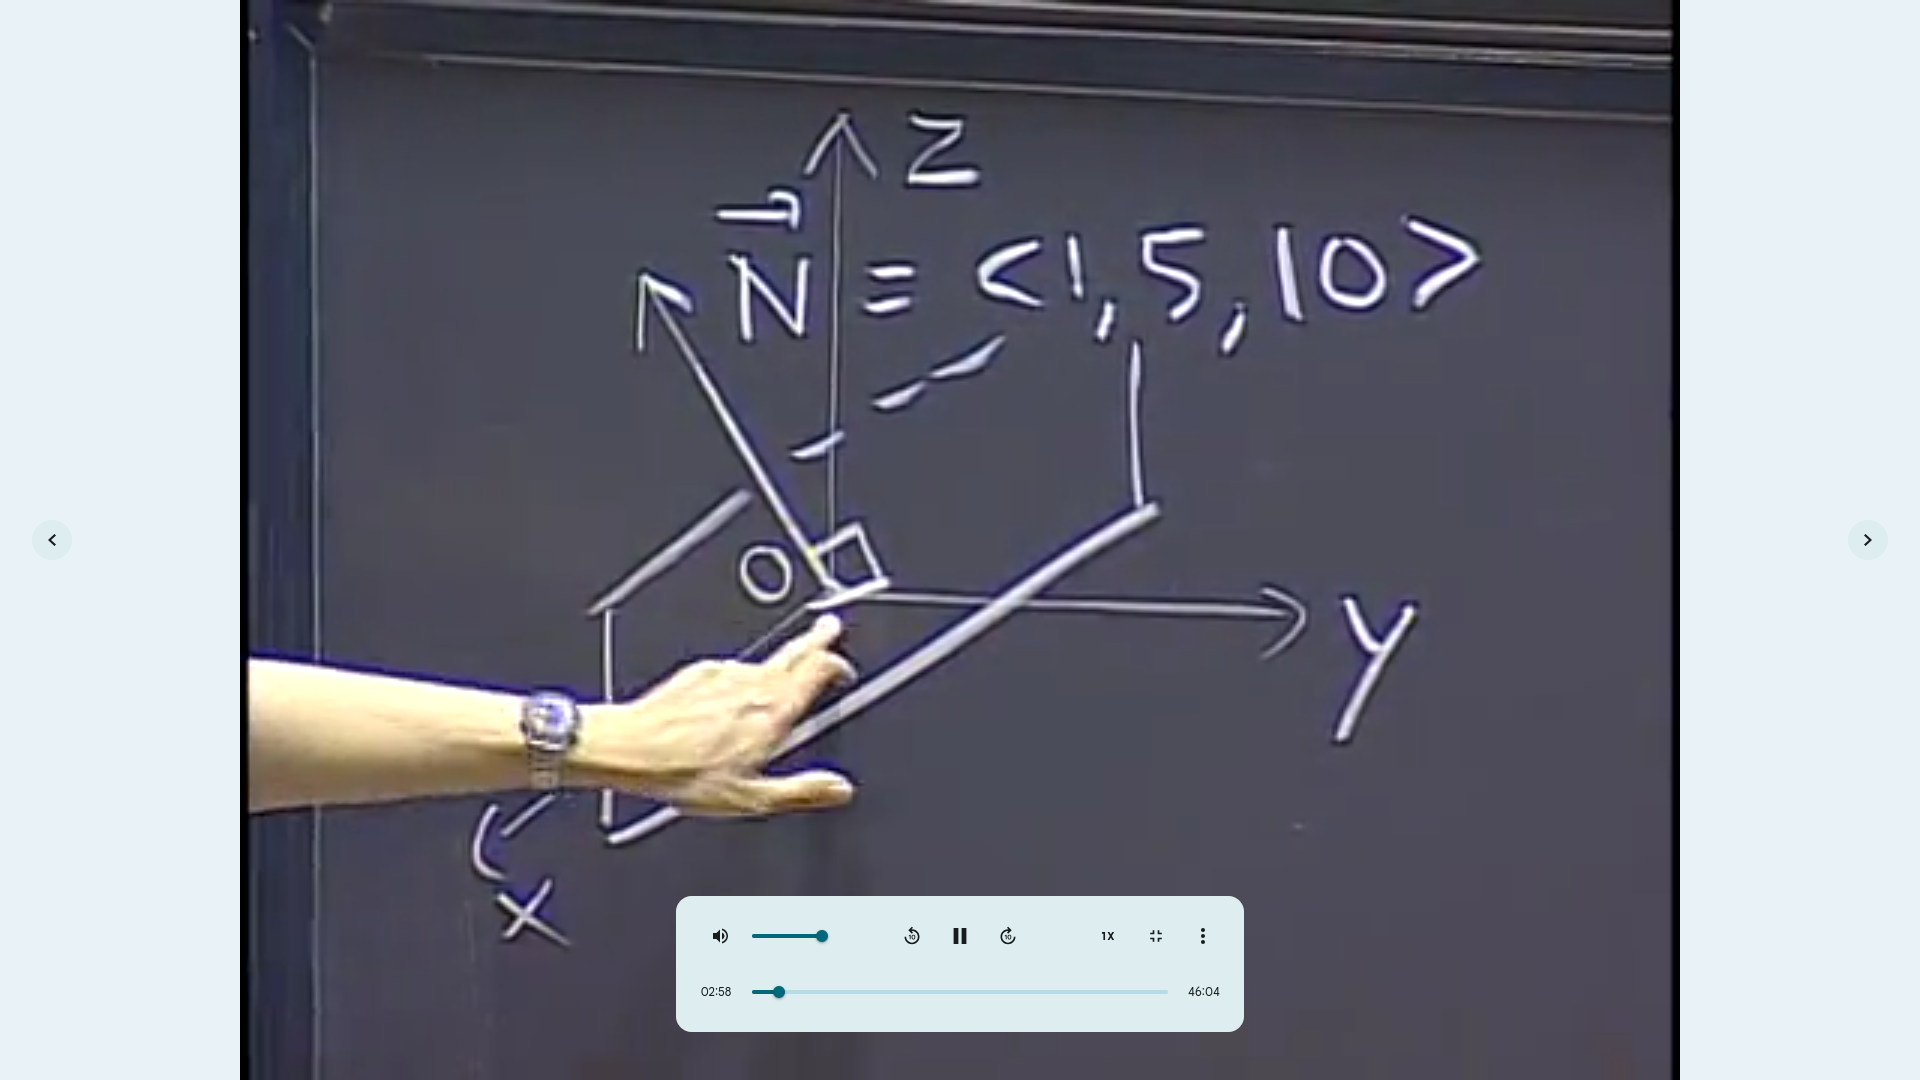 Z
N⃗ = <1,5,10>
O
y
x
10
10
1X
02:58
46:04